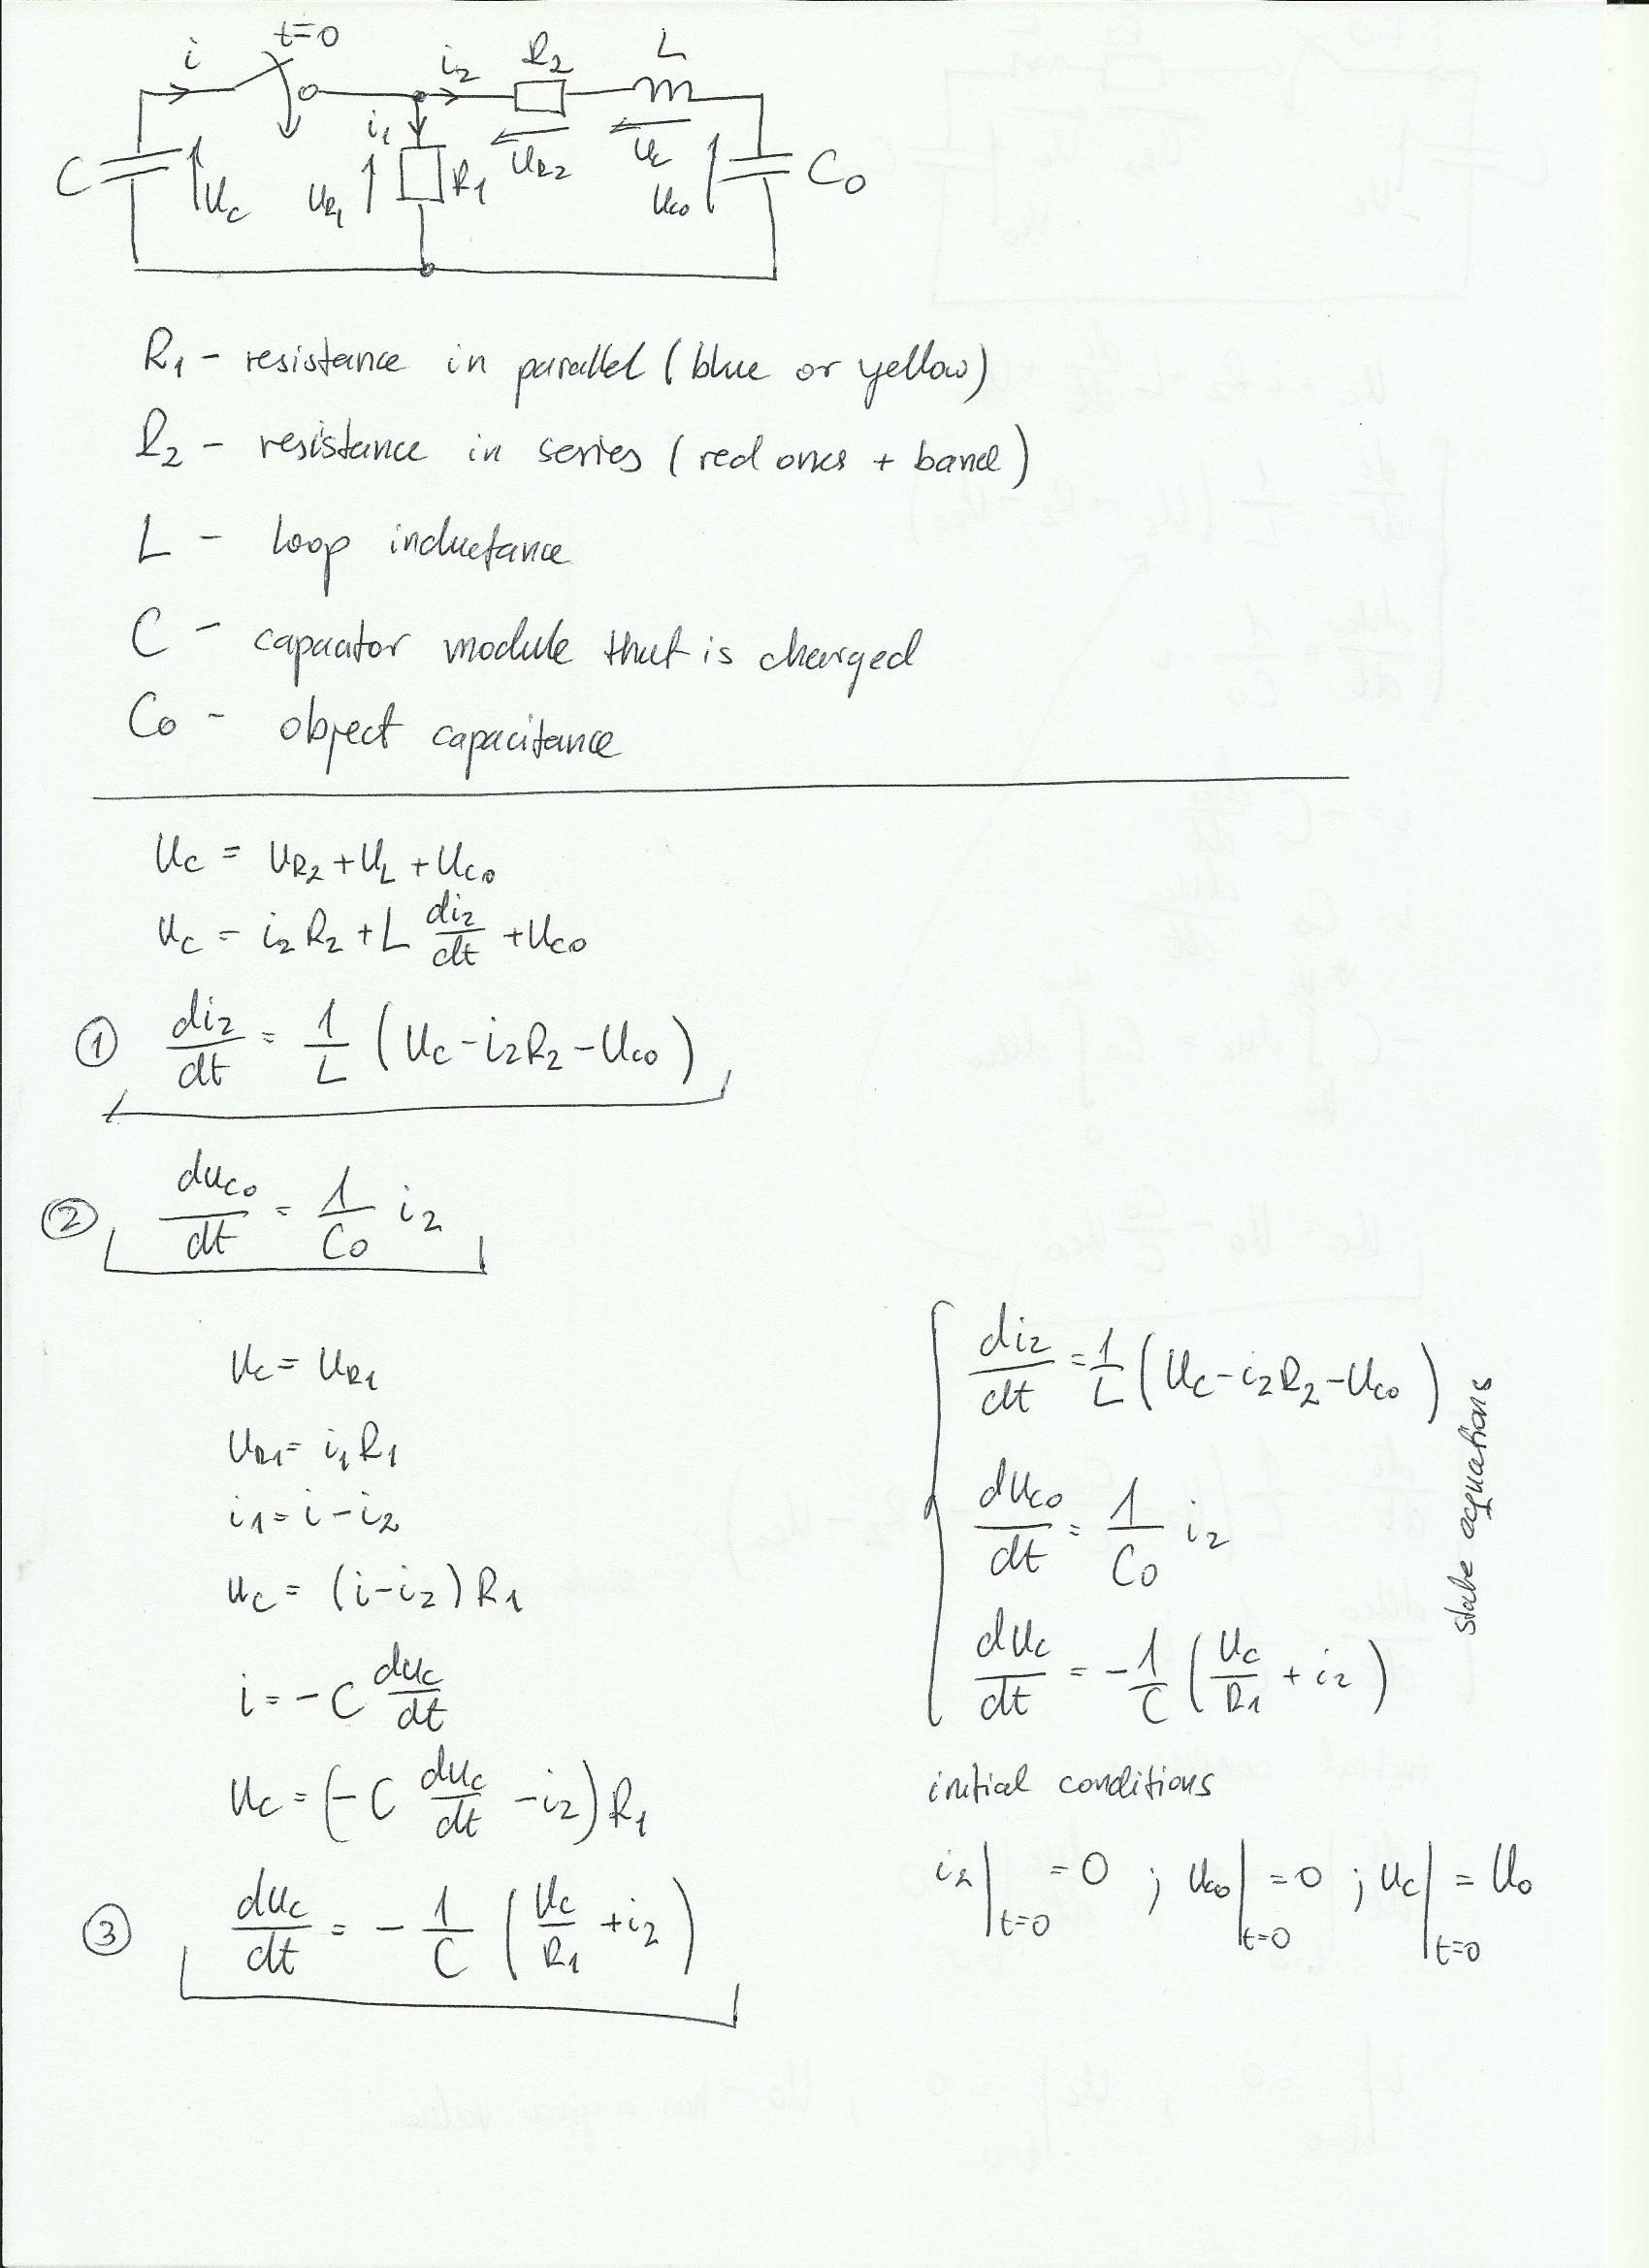 t=0
i
i₂ R₂ L
i₁
C u_C u_R1 R₁ u_R2 u_L u_C0 C₀
R₁ - resistance in parallel (blue or yellow)
R₂ - resistance in series (red ones + band)
L - loop inductance
C - capacitor module that is charged
C₀ - object capacitance
u_C = u_R2 + u_L + u_C0
u_C = i₂ R₂ + L di₂/dt + u_C0
① di₂/dt = 1/L (u_C - i₂R₂ - u_C0)
② du_C0/dt = 1/C₀ i₂
u_C = u_R1
u_R1 = i₁ R₁
i₁ = i - i₂
u_C = (i - i₂) R₁
i = -C du_C/dt
u_C = (-C du_C/dt - i₂) R₁
③ du_C/dt = -1/C (u_C/R₁ + i₂)
di₂/dt = 1/L (u_C - i₂R₂ - u_C0)
du_C0/dt = 1/C₀ i₂
du_C/dt = -1/C (u_C/R₁ + i₂)
state aequations
initial conditions
i₂|t=0 = 0 ; u_C0|t=0 = 0 ; u_C|t=0 = U₀